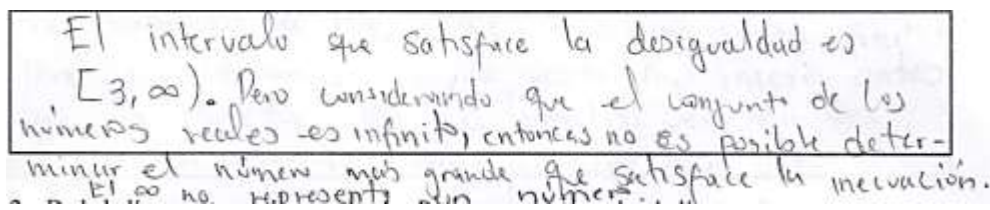 El intervalo que satisface la desigualdad es
[3, ∞). Pero considerando que el conjunto de los
números reales es infinito, entonces no es posible deter-
minar el número más grande que satisface la inecuación.
El ∞ no representa un número.